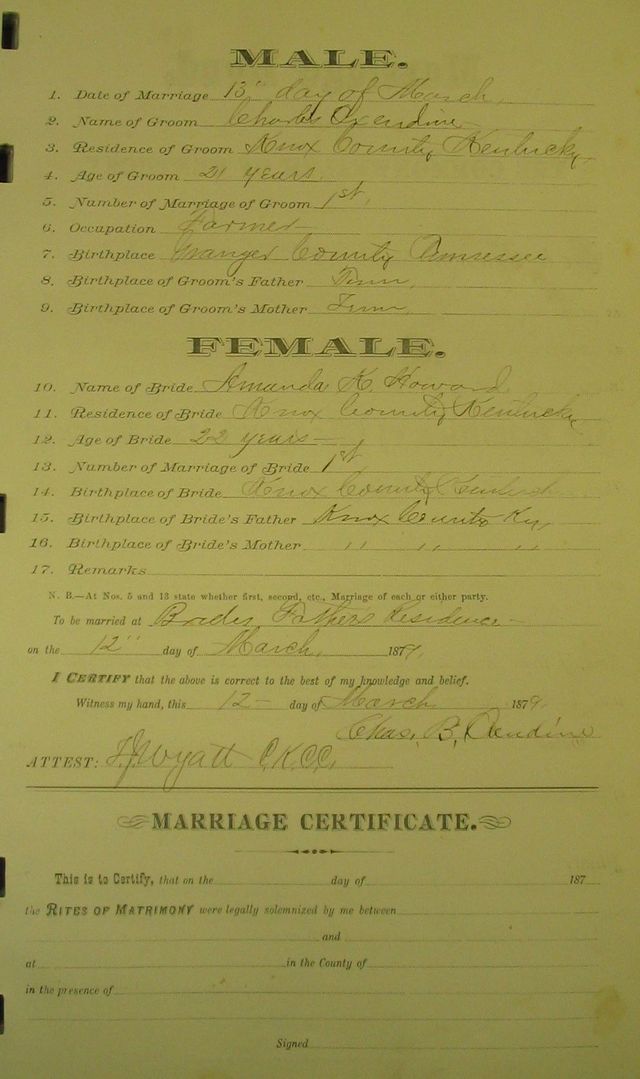 MALE.
1. Date of Marriage 13" day of March
2. Name of Groom Charles Oxendine
3. Residence of Groom Knox County, Kentucky
4. Age of Groom 21 years
5. Number of Marriage of Groom 1st
6. Occupation Farmer
7. Birthplace County
8. Birthplace of Groom's Father Tenn,
9. Birthplace of Groom's Mother Tenn,
FEMALE.
10. Name of Bride Amanda K. Howard
11. Residence of Bride Knox County, Kentucky
12. Age of Bride 22 years
13. Number of Marriage of Bride 1st
14. Birthplace of Bride Knox County
15. Birthplace of Bride's Father Knox County Ky,
16. Birthplace of Bride's Mother " " "
17. Remarks
N. B.—At Nos. 5 and 13 state whether first, second, etc., Marriage of each or either party.
To be married at Brides Father's Residence
on the 12" day of March, 1879,
I CERTIFY that the above is correct to the best of my knowledge and belief.
Witness my hand, this 12 day of March 1879,
Chas. B,
ATTEST: Wyatt C.K.C.C.
MARRIAGE CERTIFICATE.
This is to Certify, that on the day of 187
the RITES OF MATRIMONY were legally solemnized by me between
and
at in the County of
in the presence of
Signed